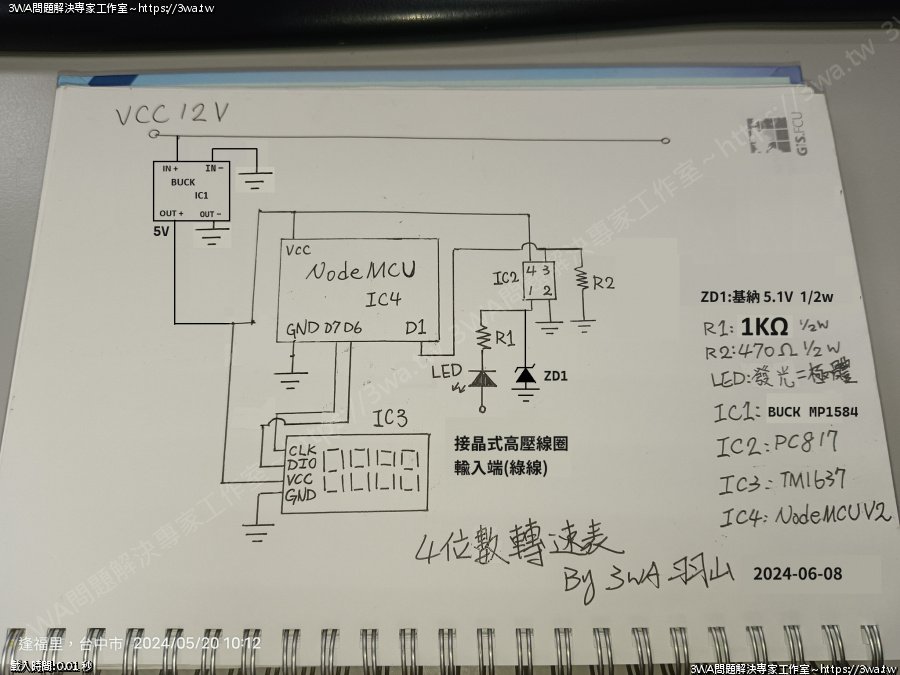 3WA問題解決專家工作室~https://3wa.tw
VCC 12V
GIS.FCU
IN+ IN-
BUCK
IC1
OUT+ OUT-
5V
VCC
NodeMCU
IC4
GND D7 D6 D1
IC2
4 3
1 2
R2
R1
LED
ZD1
IC3
CLK
DIO
VCC
GND
接晶式高壓線圈
輸入端(綠線)
ZD1:基納 5.1V 1/2w
R1: 1KΩ 1/2W
R2:470Ω 1/2W
LED:發光二極體
IC1: BUCK MP1584
IC2:PC817
IC3:TM1637
IC4:NodeMCU V2
4位數轉速表
By 3WA 羽山 2024-06-08
3WA問題解決專家工作室~https://3wa.tw
逢福里,台中市 2024/05/20 10:12
載入時間:0.01 秒
3WA問題解決專家工作室~https://3wa.tw